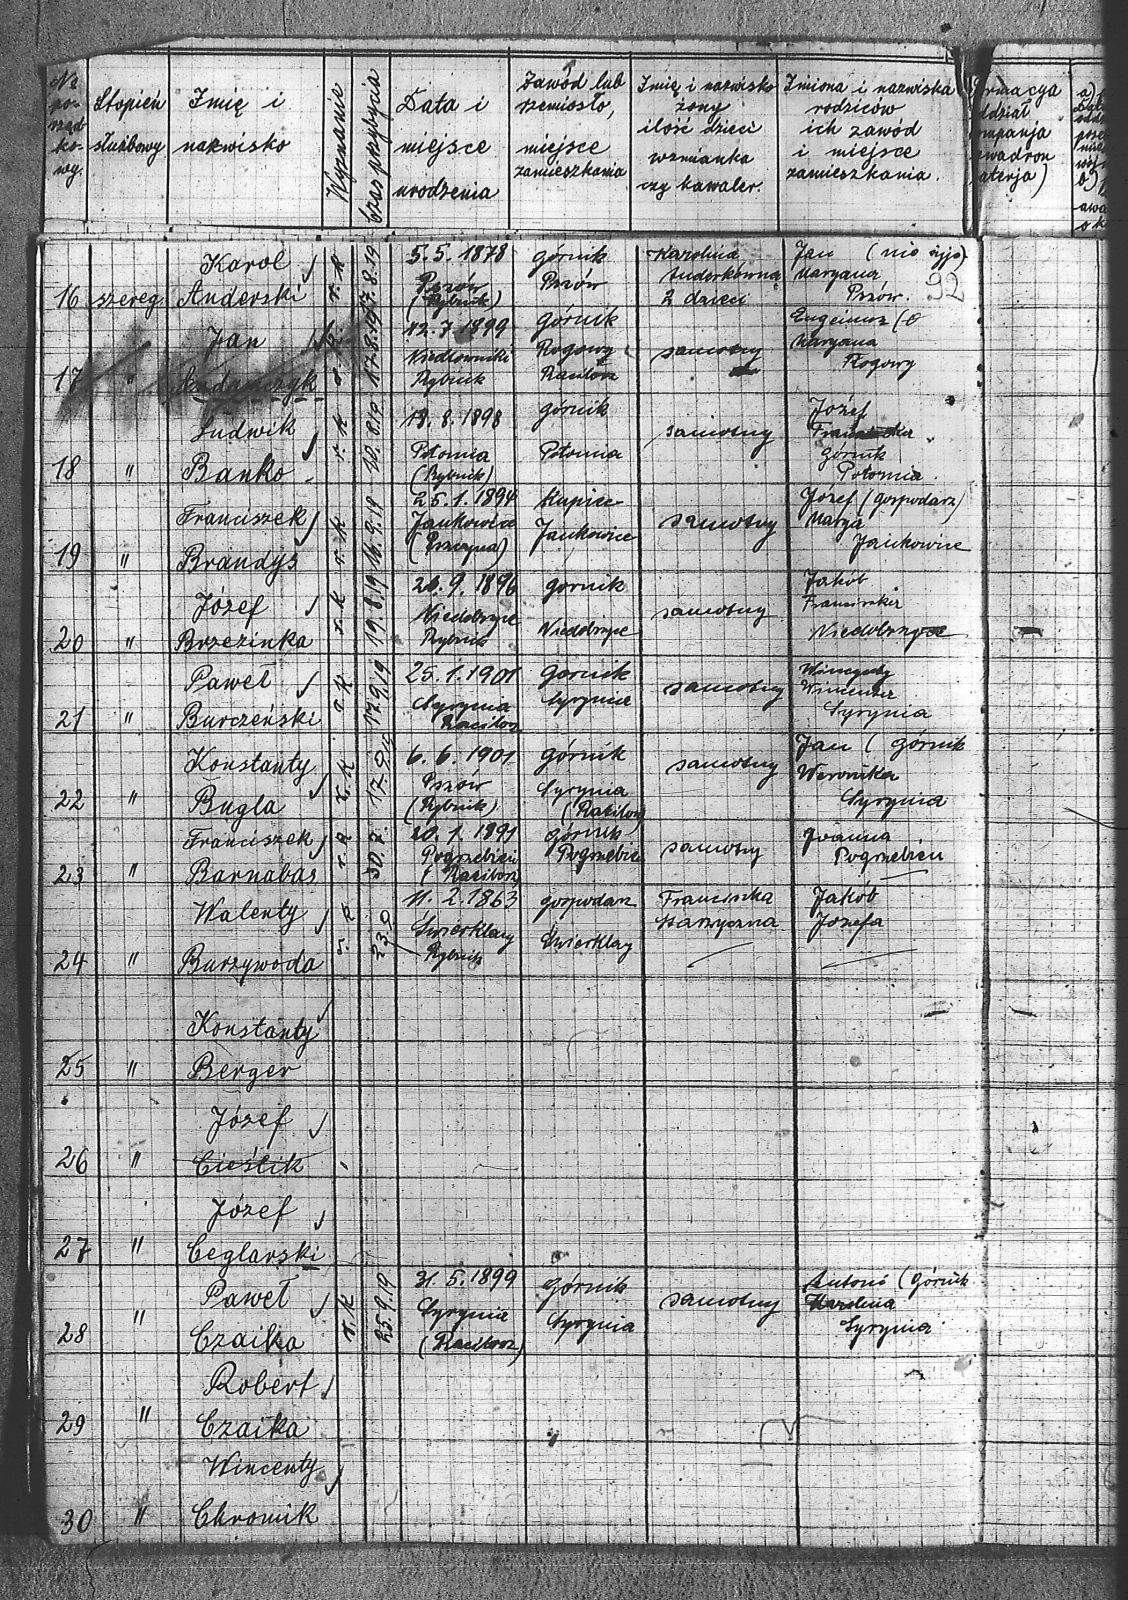 No
po-
rząd
ko-
wy.
Stopień
służbowy
Imię i
nazwisko
Wyznanie
Czas przybycia
Data i
miejsce
urodzenia
Zawód lub
rzemiosło,
miejsce
zamieszkania
Imię i nazwisko
żony
ilość dzieci
wzmianka
czy kawaler.
Imiona i nazwiska
rodziców
ich zawód
i miejsce
zamieszkania.
ormacya
ddział
mpanja
wadron
aterja)
16 szereg. Karol
Anderski
r. k
17.8.19
5.5.1878
Pszów
(Rybnik)
górnik
Pszów
Karolina
2 dzieci
Jan (nie żyje)
Maryanna
Pszów. 92
17 " Jan
r. k
17.8.19
12.7.1899
Rybnik
Górnik
Rogowy
Racibórz
samotny
Maryana
Rogowy
18 " Ludwik
Banko
r. k
10.8.19
18.8.1898
Połomia
(Rybnik)
górnik
Połomia
samotny
Józef
Górnik
Połomia
19 " Franciszek
Brandys
r. k
16.9.19
25.1.1894
Jankowice
(Pszczyna)
Kupiec
Jankowice
samotny
Józef (gospodarz)
Marya
Jankowice
20 " Józef
Brzezinka
r. k
19.8.19
20.9.1896
Niedobczyce
Rybnik
górnik
Niedobczyce
samotny
Jakób
Franciszka
Niedobczyce
21 " Paweł
Burczeński
r. k
17.9.19
25.1.1901
Syrynia
Racibórz
Górnik
Syrynia
samotny
Syrynia
22 " Konstanty
Bugla
r. k
17.9.19
6.6.1901
Pszów
(Rybnik)
Górnik
Syrynia
(Racibórz)
samotny
Jan (górnik
Weronika
Syrynia
23 " Franciszek
Barnabas
r. k
30.7.
20.1.1891
Pogrzebień
(Racibórz
Górnik
Pogrzebień
samotny
Joanna
Pogrzebień
24 " Walenty
Burzywoda
r. k
23.8
11.2.1863
Świerklany
Rybnik
gospodarz
Świerklany
Franciszka
Jakób
Józefa
25 " Konstanty
Berger
26 " Józef
Cieślik
27 " Józef
Ceglarski
28 " Paweł
Czaika
r. k
25.9.19
31.5.1899
Syrynia
(Racibórz)
Górnik
Syrynia
samotny
Antoni (Górnik
Karolina
Syrynia
29 " Robert
Czaika
30 " Wincenty
Chromik